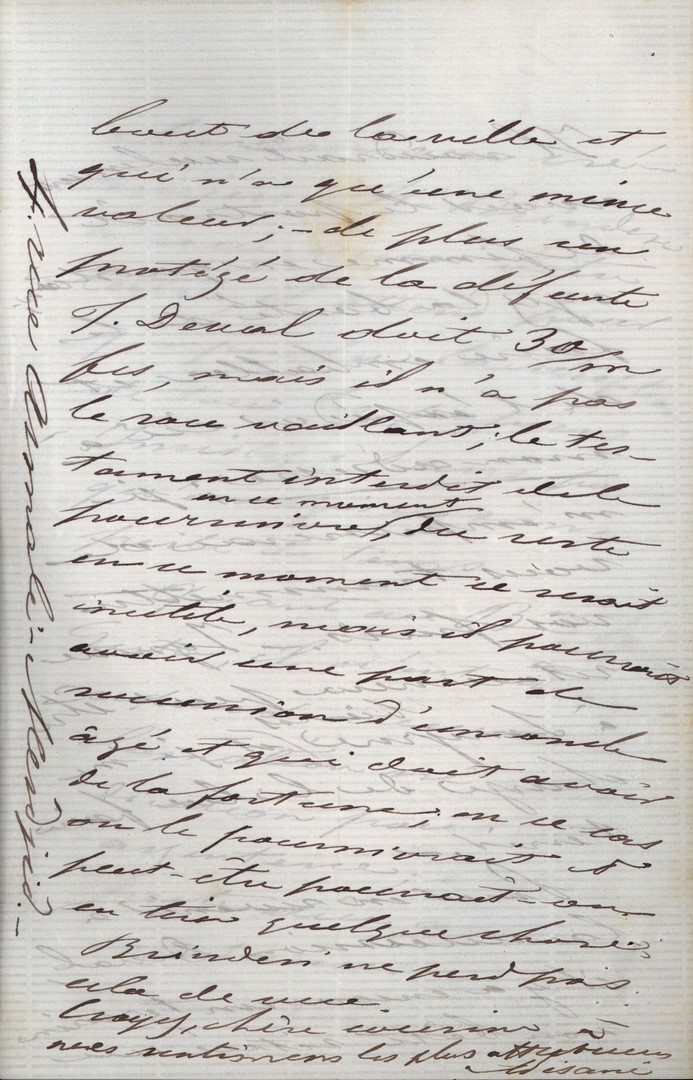 bout de la ville et
qui n'a qu'une mince
valeur; – de plus un
protégé de la défunte
J. Deval doit 30/m
frs, mais il n'a pas
le sou vaillant; le tes-
tament interdit de le
en ce moment
poursuivre, du reste
en ce moment ce serait
inutile, mais il pourrait
avoir une part de
succession d'un oncle
âgé et qui doit avoir
de la fortune; en ce cas
on le poursuivrait &
peut-être pourrait-on
en tirer quelque chose;
Brindesi ne perd pas
cela de vue
Croyez, chère cousine à
mes sentimens les plus affectueux
4. rue